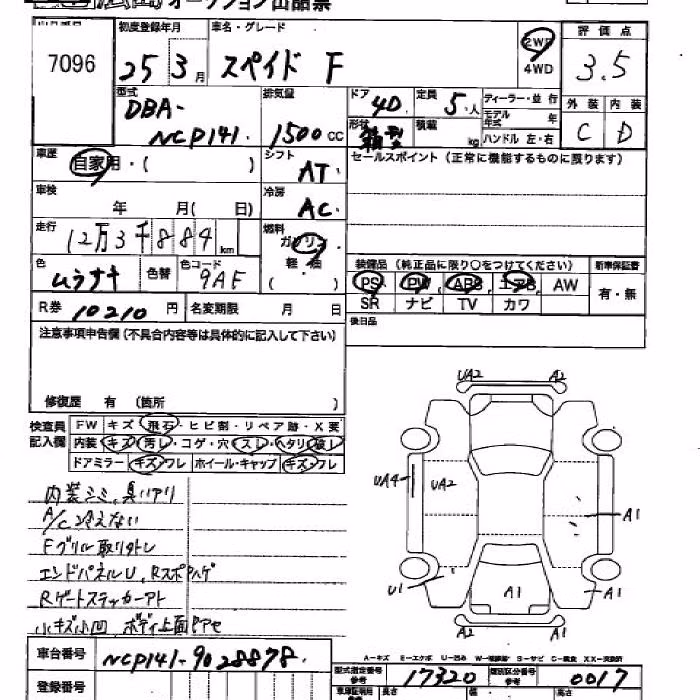 オークション出品票
7096
初度登録年月
25 3月
車名・グレード
スペイド F
2WD
4WD
評価点
3.5
外装 内装
C D
型式
DBA-
NCP141
排気量
1500cc
ドア
4D
定員
5人
形状
積載 kg
ディーラー・並行
モデル年式 年
ハンドル 左・右
車歴
自家用・( )
シフト
AT
セールスポイント (正常に機能するものに限ります)
車検
年 月( 日)
冷房
AC
走行
12万3千884km
燃料
ガソリン
軽・油
( )
色
ムラサキ
色替
色コード
9AF
装備品 (純正品に限り○をつけてください)
新車保証書
PS PW ABS エアB AW
SR ナビ TV カワ
有・無
R券 10210円
名変期限 月 日
後日品
注意事項申告欄(不具合内容等は具体的に記入して下さい)
修復歴 有 (箇所 )
検査員記入欄
FW キズ・飛石・ヒビ割・リペア跡・X要
内装 キズ・汚レ・コゲ・穴・スレ・ヘタリ・破レ
ドアミラー キズ・ワレ ホイール・キャップ キズ・ワレ
内装シミ、臭いアリ
A/C冷えない
Fグリル取リトレ
エンドパネルU、Rスポハゲ
Rゲートステッカーアト
小キズ小凹 ボディ上面ボケアセ
UA2 A2
UA4 UA2
A1
U1 A1 A1
A2 A1
A-キズ E-エクボ U-凹み W-補修跡 S-サビ C-腐食 XX-交換済
車台番号
NCP141-9028878
型式指定番号
参考
17320
類別区分番号
参考
0017
登録番号
長さ 幅 高さ